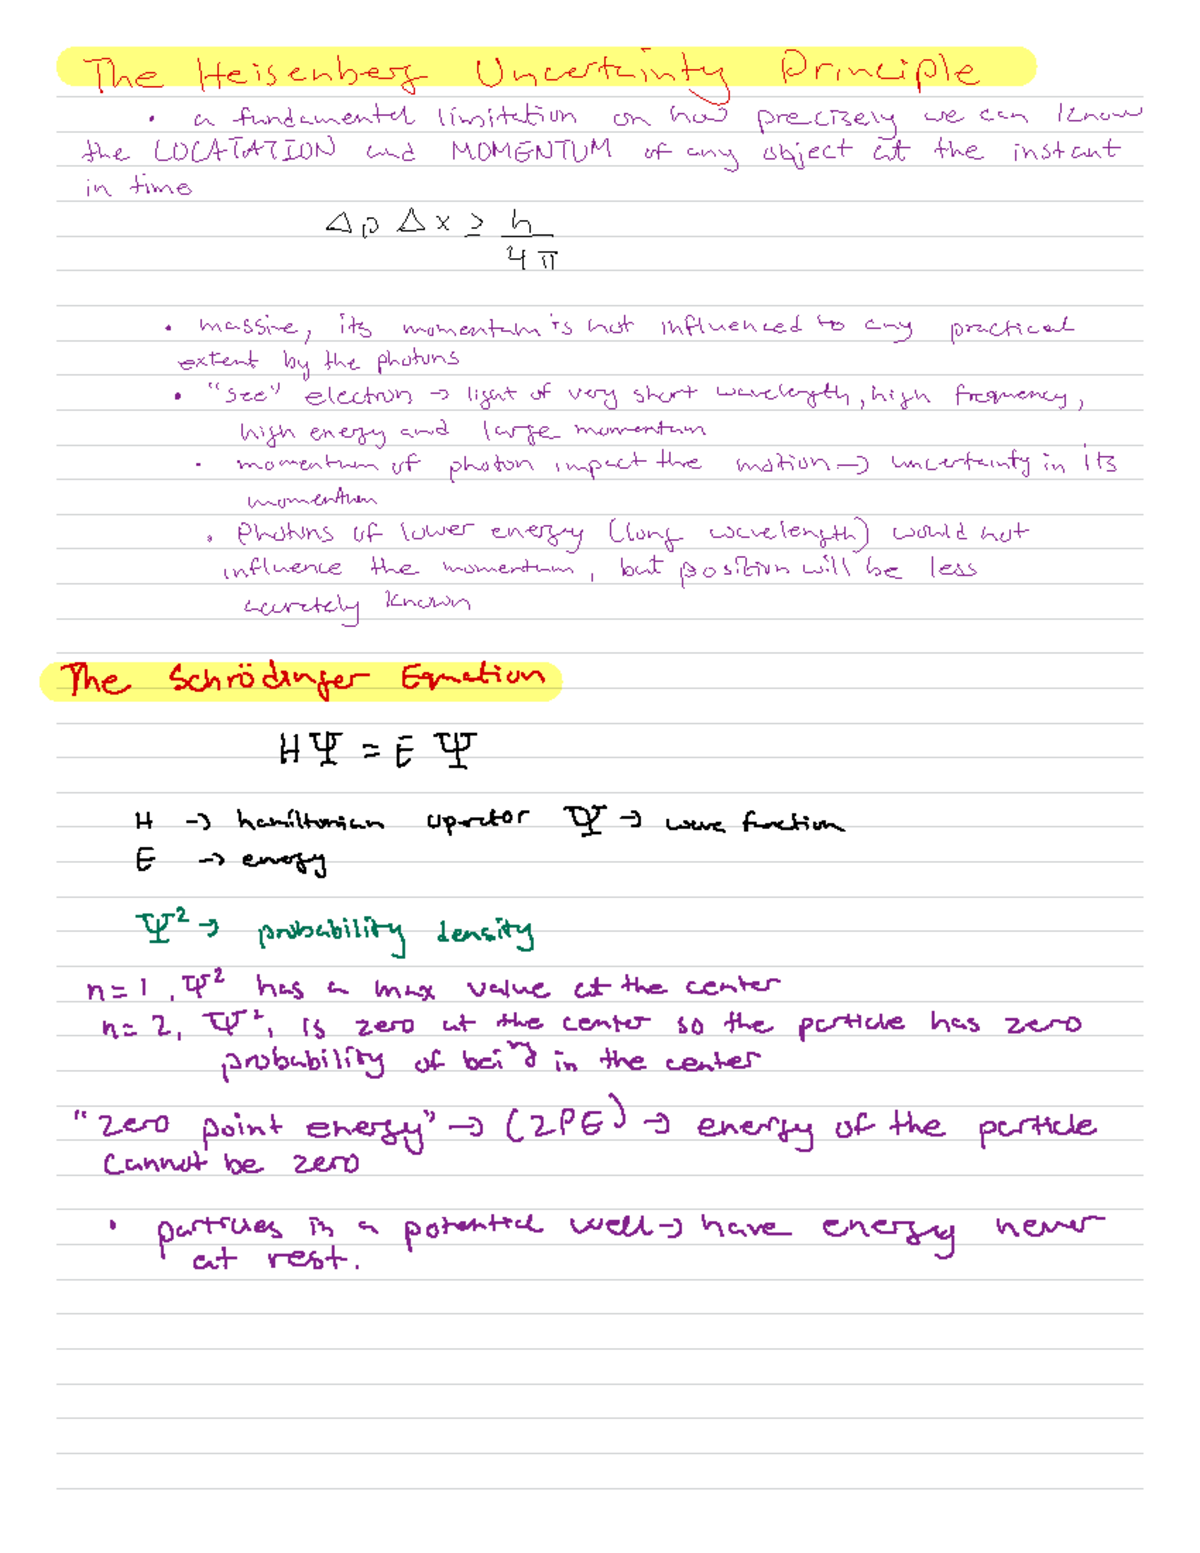 The Heisenberg Uncertainty Principle
• a fundamental limitation on how precisely we can know
the LOCATATION and MOMENTUM of any object at the instant
in time
Δp Δx ≥ h
4π
• massive, its momentum is not influenced to any practical
extent by the photons
• "see" electron → light of very short wavelength, high frequency,
high energy and large momentum
• momentum of photon impact the motion → uncertainty in its
momentum
• Photons of lower energy (long wavelength) would not
influence the momentum, but position will be less
accurately known
The Schrödinger Equation
HΨ = EΨ
H → hamiltonian operator Ψ → wave function
E → energy
Ψ² → probability density
n=1, Ψ² has a max value at the center
n=2, Ψ², is zero at the center so the particle has zero
probability of being in the center
"zero point energy" → (ZPE) → energy of the particle
cannot be zero
• particles in a potential well → have energy never
at rest.